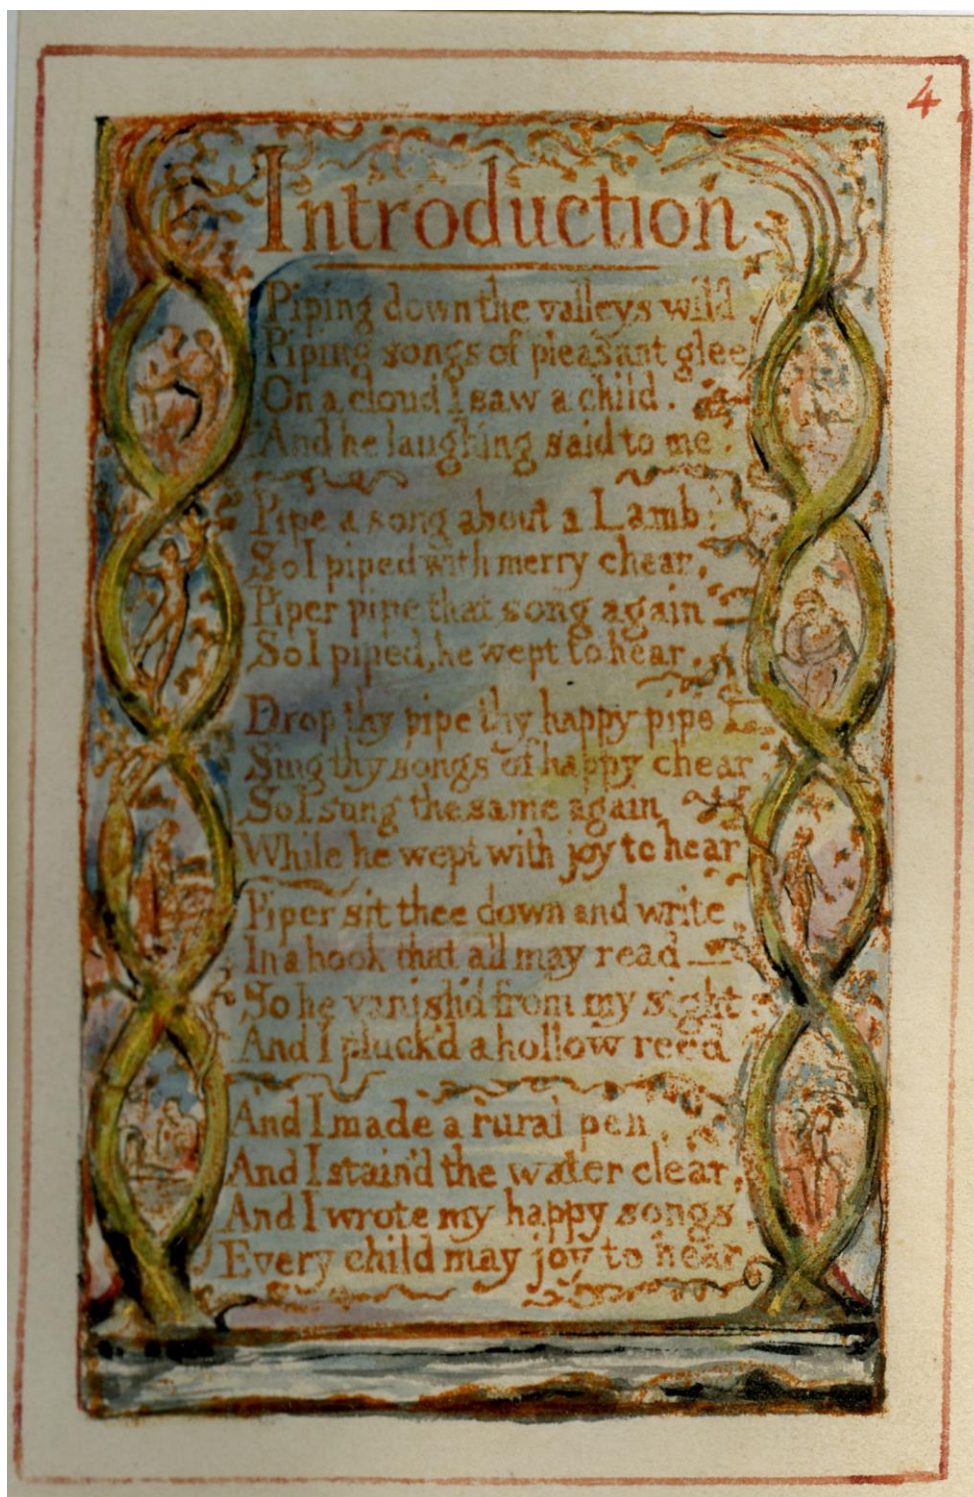 4
Introduction
Piping down the valleys wild
Piping songs of pleasant glee
On a cloud I saw a child.
And he laughing said to me.
Pipe a song about a Lamb:
So I piped with merry chear,
Piper pipe that song again—
So I piped, he wept to hear.
Drop thy pipe thy happy pipe
Sing thy songs of happy chear
So I sung the same again
While he wept with joy to hear
Piper sit thee down and write
In a book that all may read—
So he vanish'd from my sight
And I pluck'd a hollow reed
And I made a rural pen,
And I stain'd the water clear,
And I wrote my happy songs
Every child may joy to hear